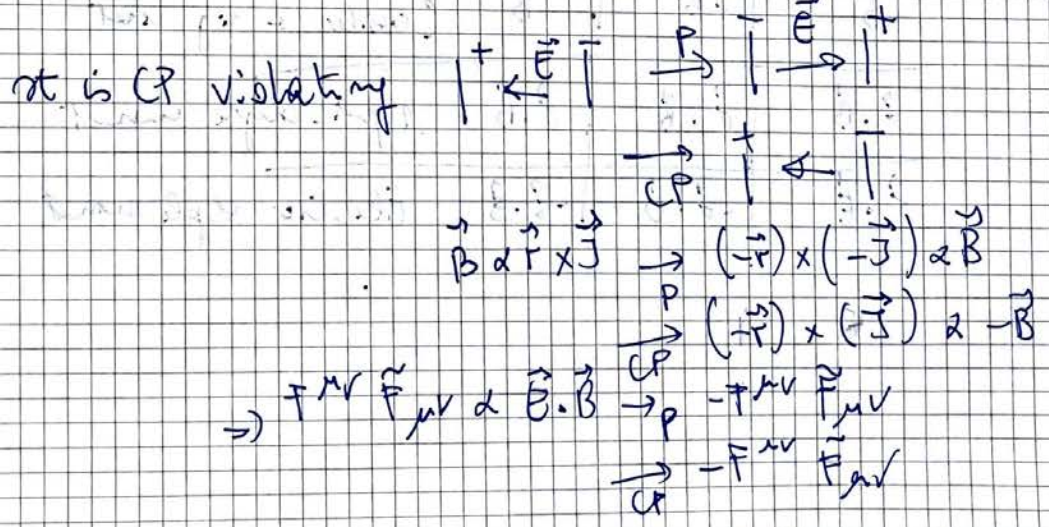 It is CP violating |⁺ ←E⃗ |⁻ →P |⁻ E⃗→ |⁺
→CP |⁺ ← |⁻
B⃗ ∝ r⃗ × J⃗ →P (-r⃗) × (-J⃗) ∝ B⃗
→CP (-r⃗) × (J⃗) ∝ -B⃗
⇒) F^μν F̃_μν ∝ E⃗·B⃗ →P -F^μν F̃_μν
→CP -F^μν F̃_μν